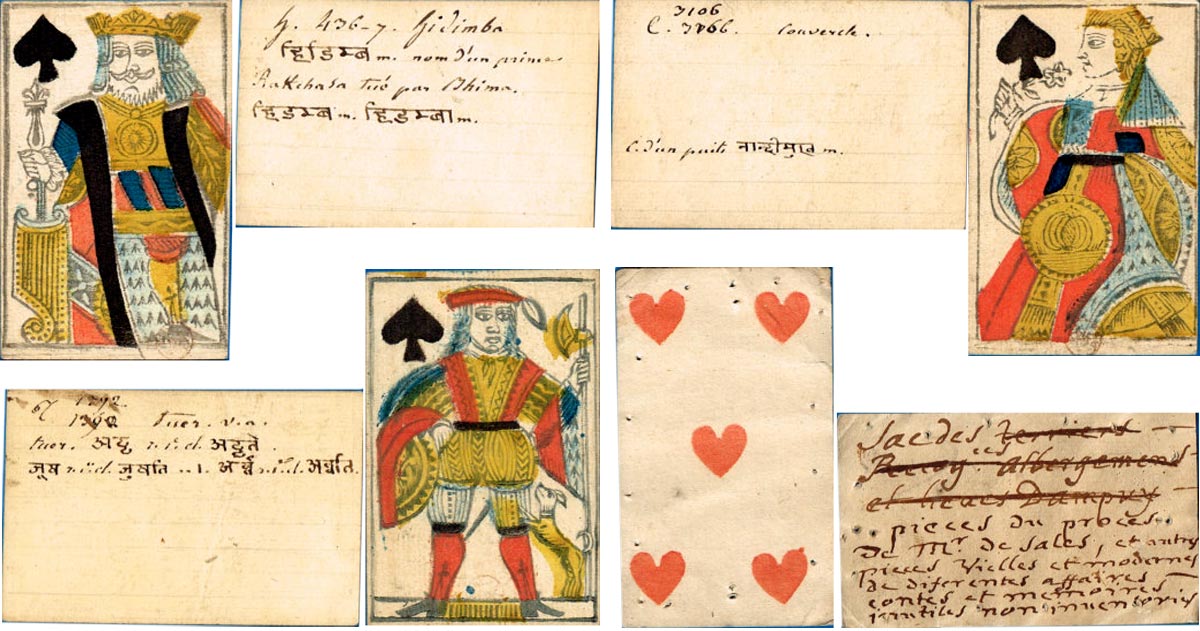 H. 436-7. Hidimba
हिडिम्ब m. nom d'un prince
Rakchasa tué par Bhima.
हिडम्ब m. हिडम्बा m.
3106
C. 3766. Couvercle.
C. d'un puits नान्दीमुख m.
1392
T. tuer. v.a.
tuer.
जूष जुषति अर्ब्ब अर्ब्बति.
Sac des terriers
Albergemens
et
pieces du proces
De Mr. de Sales, et autres
pieces vielles et modernes
de diferentes affaires
contes et memoires
inutiles non inventories